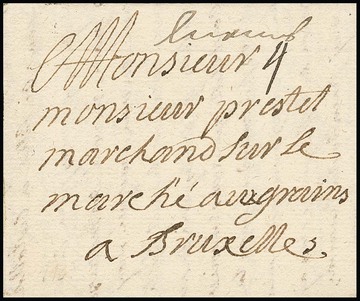 Monsieur 4
monsieur prestet
marchand sur le
marché aux grains
a Bruxelles.